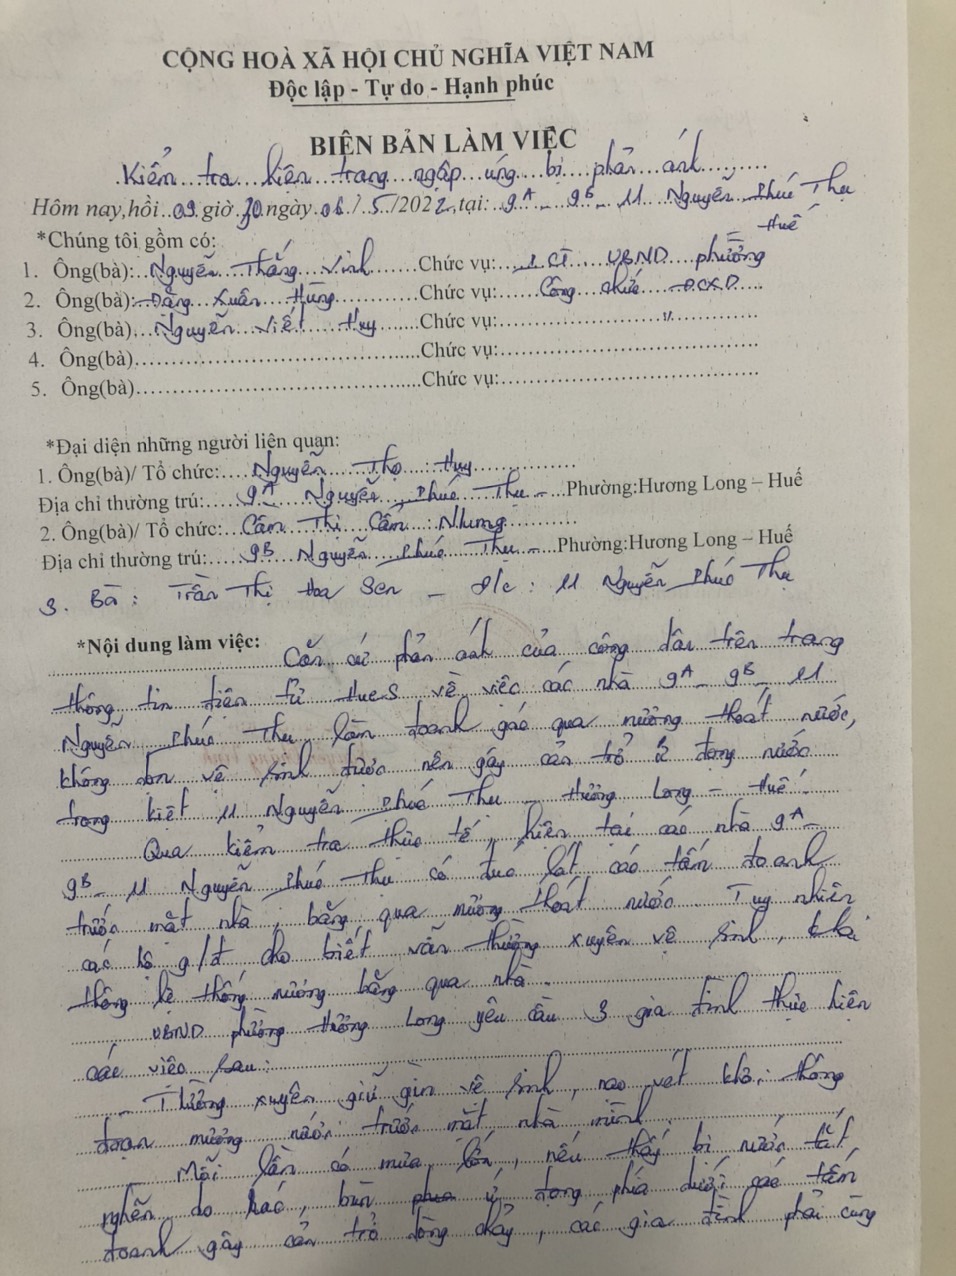 CỘNG HOÀ XÃ HỘI CHỦ NGHĨA VIỆT NAM
Độc lập - Tự do - Hạnh phúc
BIÊN BẢN LÀM VIỆC
Kiểm tra hiện trạng ngập úng bị phản ánh
Hôm nay, hồi 09 giờ 30 ngày 06/5/2022, tại: 9A - 9B - 11 Nguyễn Phúc Thụ
- Huế
*Chúng tôi gồm có:
1. Ông(bà): Nguyễn Thắng Vinh Chức vụ: PCT UBND phường
2. Ông(bà): Đặng Xuân Hùng Chức vụ: Công chức ĐCXD
3. Ông(bà) Nguyễn Viết Huy Chức vụ: "
4. Ông(bà) Chức vụ:
5. Ông(bà) Chức vụ:
*Đại diện những người liên quan:
1. Ông(bà)/ Tổ chức: Nguyễn Thọ Huy
Địa chỉ thường trú: 9A Nguyễn Phúc Thụ - Phường:Hương Long – Huế
2. Ông(bà)/ Tổ chức: Cầm Thị Cẩm Nhung
Địa chỉ thường trú: 9B Nguyễn Phúc Thụ - Phường:Hương Long – Huế
3. Bà: Trần Thị Hoa Sen - đ/c: 11 Nguyễn Phúc Thụ
*Nội dung làm việc: Căn cứ phản ánh của công dân trên trang
thông tin điện tử HueS về việc các nhà 9A - 9B - 11
Nguyễn Phúc Thụ làm đanh gác qua mương thoát nước,
không dọn vệ sinh được nên gây cản trở ứ đọng nước
trong kiệt 11 Nguyễn Phúc Thụ - Hương Long - Huế.
Qua kiểm tra thực tế, hiện tại các nhà 9A -
9B - 11 Nguyễn Phúc Thụ có đúc lát các tấm đanh
trước mặt nhà, băng qua mương thoát nước. Tuy nhiên
các hộ g/đ cho biết vẫn thường xuyên vệ sinh, khai
thông hệ thống mương băng qua nhà.
UBND phường Hương Long yêu cầu 3 gia đình thực hiện
các việc sau:
- Thường xuyên giữ gìn vệ sinh, nạo vét khơi thông
đoạn mương nước trước mặt nhà mình.
- Mỗi lần có mưa lớn, nếu thấy bị nước tắt
nghẽn do rác, bùn ứ đọng phía dưới các tấm
đanh gây cản trở dòng chảy, các gia đình phải cùng